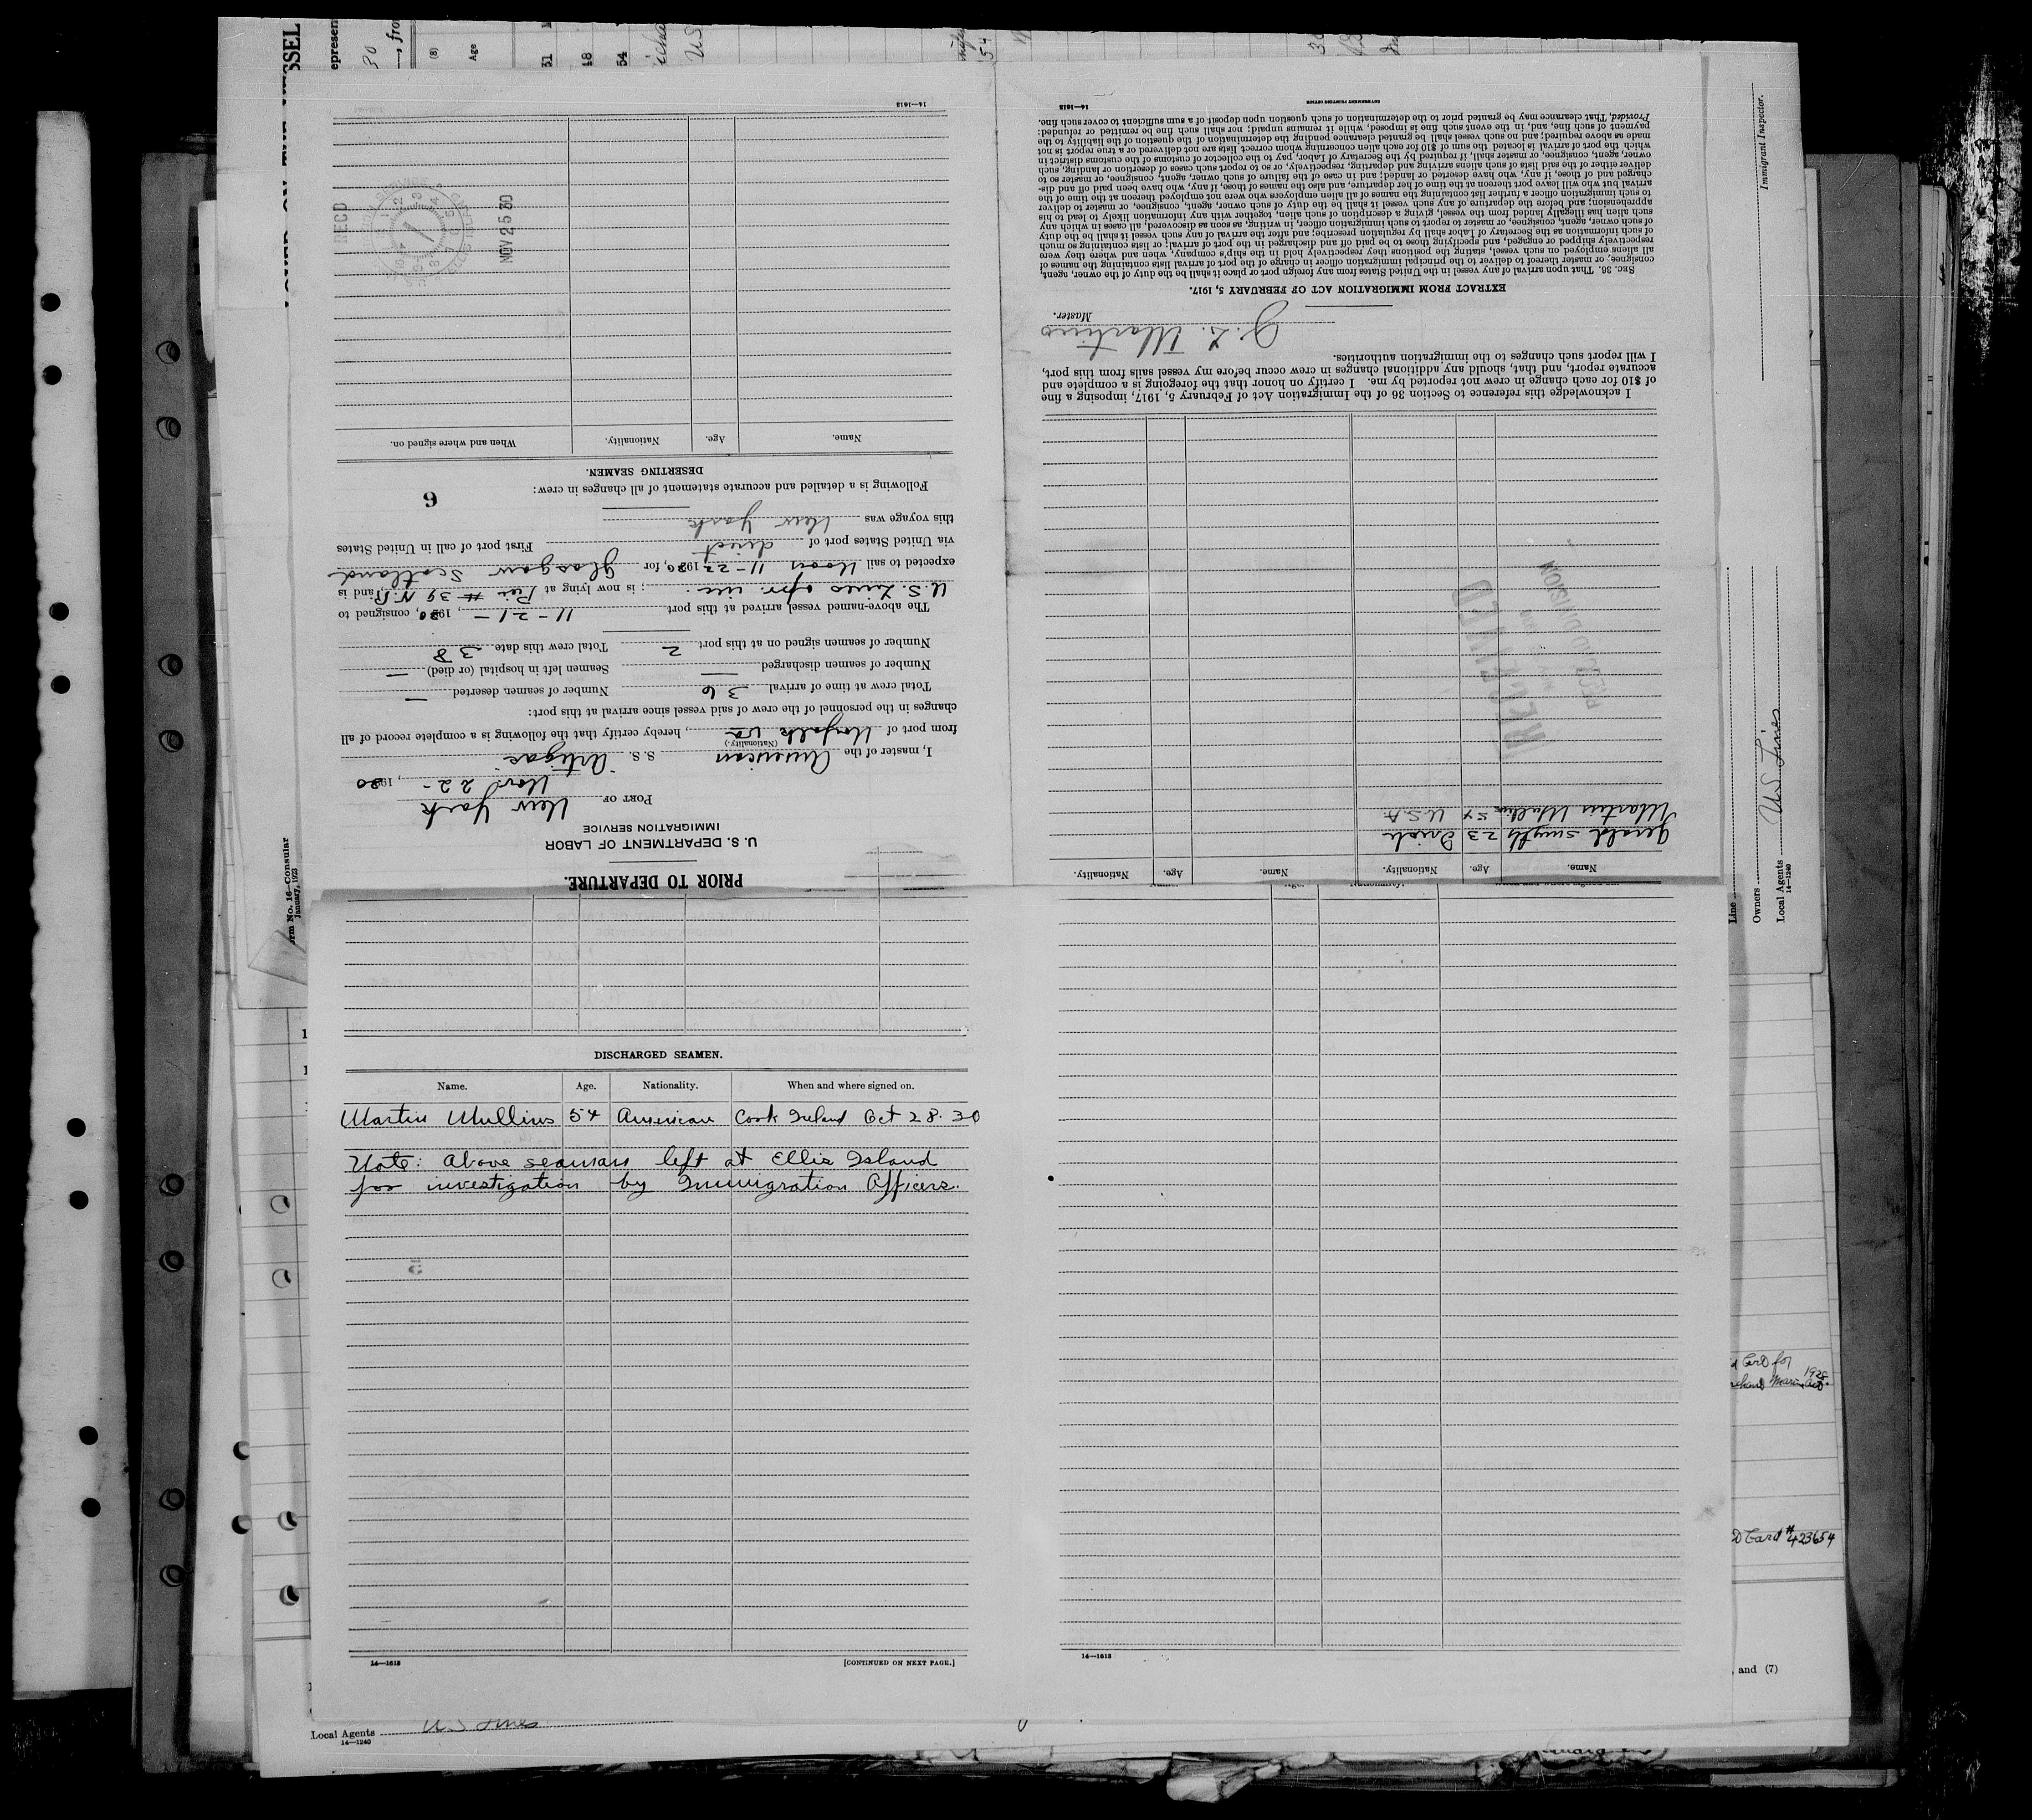 PRIOR TO DEPARTURE.
U. S. DEPARTMENT OF LABOR
IMMIGRATION SERVICE
PORT OF New York
Nov 22 -, 1930
I, master of the American S. S. "Artigas"
(Nationality.)
from port of Norfolk Va, hereby certify that the following is a complete record of all
changes in the personnel of the crew of said vessel since arrival at this port:
Total crew at time of arrival 36 Number of seamen deserted —
Number of seamen discharged — Seamen left in hospital (or died) —
Number of seamen signed on at this port 2 Total crew this date 38
The above-named vessel arrived at this port 11-21-, 1930, consigned to
U.S. Lines opr. inc.; is now lying at Pier #39 N.R., and is
expected to sail Noon 11-22 1930, for Glasgow Scotland
via United States port of direct First port of call in United States
this voyage was New York
Following is a detailed and accurate statement of all changes in crew:
6
DESERTING SEAMEN.
Name. Age. Nationality. When and where signed on.
RECD
NOV 25 30
14—1613
DISCHARGED SEAMEN.
Name. Age. Nationality. When and where signed on.
Martin Mullins 54 American Cork Ireland Oct 28. 30
Note: Above seaman left at Ellis Island
for investigation by Immigration Officers.
14—1613 [CONTINUED ON NEXT PAGE.]
14—1613
Name. Age. Nationality. Name. Age. Nationality.
Gerald Smyth 23 Irish
Martin Mullins 54 U.S.A
REC'D
RECORD DIVISION
I acknowledge this reference to Section 36 of the Immigration Act of February 5, 1917, imposing a fine
of $10 for each change in crew not reported by me. I certify on honor that the foregoing is a complete and
accurate report, and that, should any additional changes in crew occur before my vessel sails from this port,
I will report such changes to the immigration authorities.
Master.
EXTRACT FROM IMMIGRATION ACT OF FEBRUARY 5, 1917.
SEC. 36. That upon arrival of any vessel in the United States from any foreign port or place it shall be the duty of the owner, agent,
consignee, or master thereof to deliver to the principal immigration officer in charge of the port of arrival lists containing the names of
all aliens employed on such vessel, stating the positions they respectively hold in the ship's company, when and where they were
respectively shipped or engaged, and specifying those to be paid off and discharged in the port of arrival; or lists containing so much
of such information as the Secretary of Labor shall by regulation prescribe; and after the arrival of any such vessel it shall be the duty
of such owner, agent, consignee, or master to report to such immigration officer, in writing, as soon as discovered, all cases in which any
such alien has illegally landed from the vessel, giving a description of such alien, together with any information likely to lead to his
apprehension; and before the departure of any such vessel it shall be the duty of such owner, agent, consignee, or master to deliver
to such immigration officer a further list containing the names of all alien employees who were not employed thereon at the time of the
arrival but who will leave port thereon at the time of her departure, and also the names of those, if any, who have been paid off and dis-
charged and of those, if any, who have deserted or landed; and in case of the failure of such owner, agent, consignee, or master so to
deliver either of the said lists of such aliens arriving and departing, respectively, or so to report such cases of desertion or landing, such
owner, agent, consignee, or master shall, if required by the Secretary of Labor, pay to the collector of customs of the customs district in
which the port of arrival is located the sum of $10 for each alien concerning whom correct lists are not delivered or a true report is not
made as above required; and no such vessel shall be granted clearance pending the determination of the question of the liability to the
payment of such fine, and, in the event such fine is imposed, while it remains unpaid; nor shall such fine be remitted or refunded:
Provided, That clearance may be granted prior to the determination of such question upon deposit of a sum sufficient to cover such fine.
14—1613 GOVERNMENT PRINTING OFFICE
Immigrant Inspector.
Line
Owners
Local Agents US Lines
14—1240
1928
D Card #423654
, and (7)
Local Agents US Lines
14—1240
rm No. 16—Consular
January, 1923
epresen
30
(8)
Age
31
48
54
US